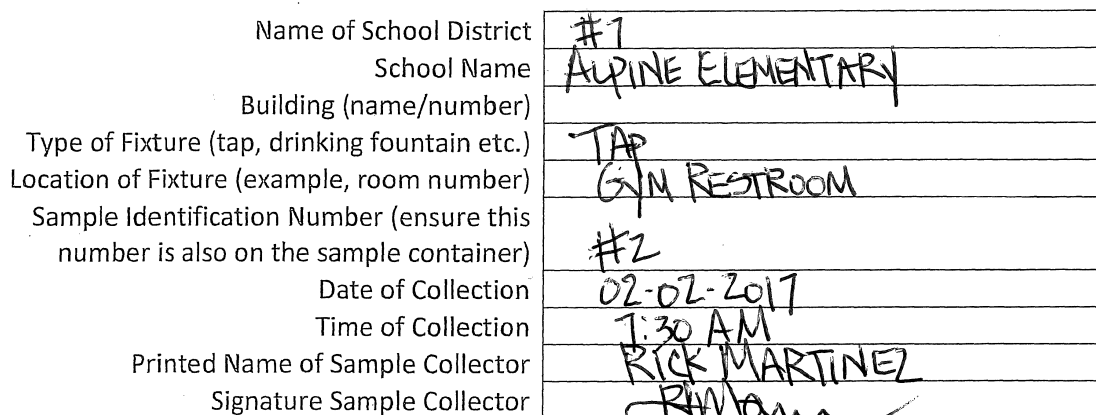 Name of School District #1
School Name ALPINE ELEMENTARY
Building (name/number)
Type of Fixture (tap, drinking fountain etc.) TAP
Location of Fixture (example, room number) GYM RESTROOM
Sample Identification Number (ensure this
number is also on the sample container) #2
Date of Collection 02-02-2017
Time of Collection 7:30 AM
Printed Name of Sample Collector RICK MARTINEZ
Signature Sample Collector